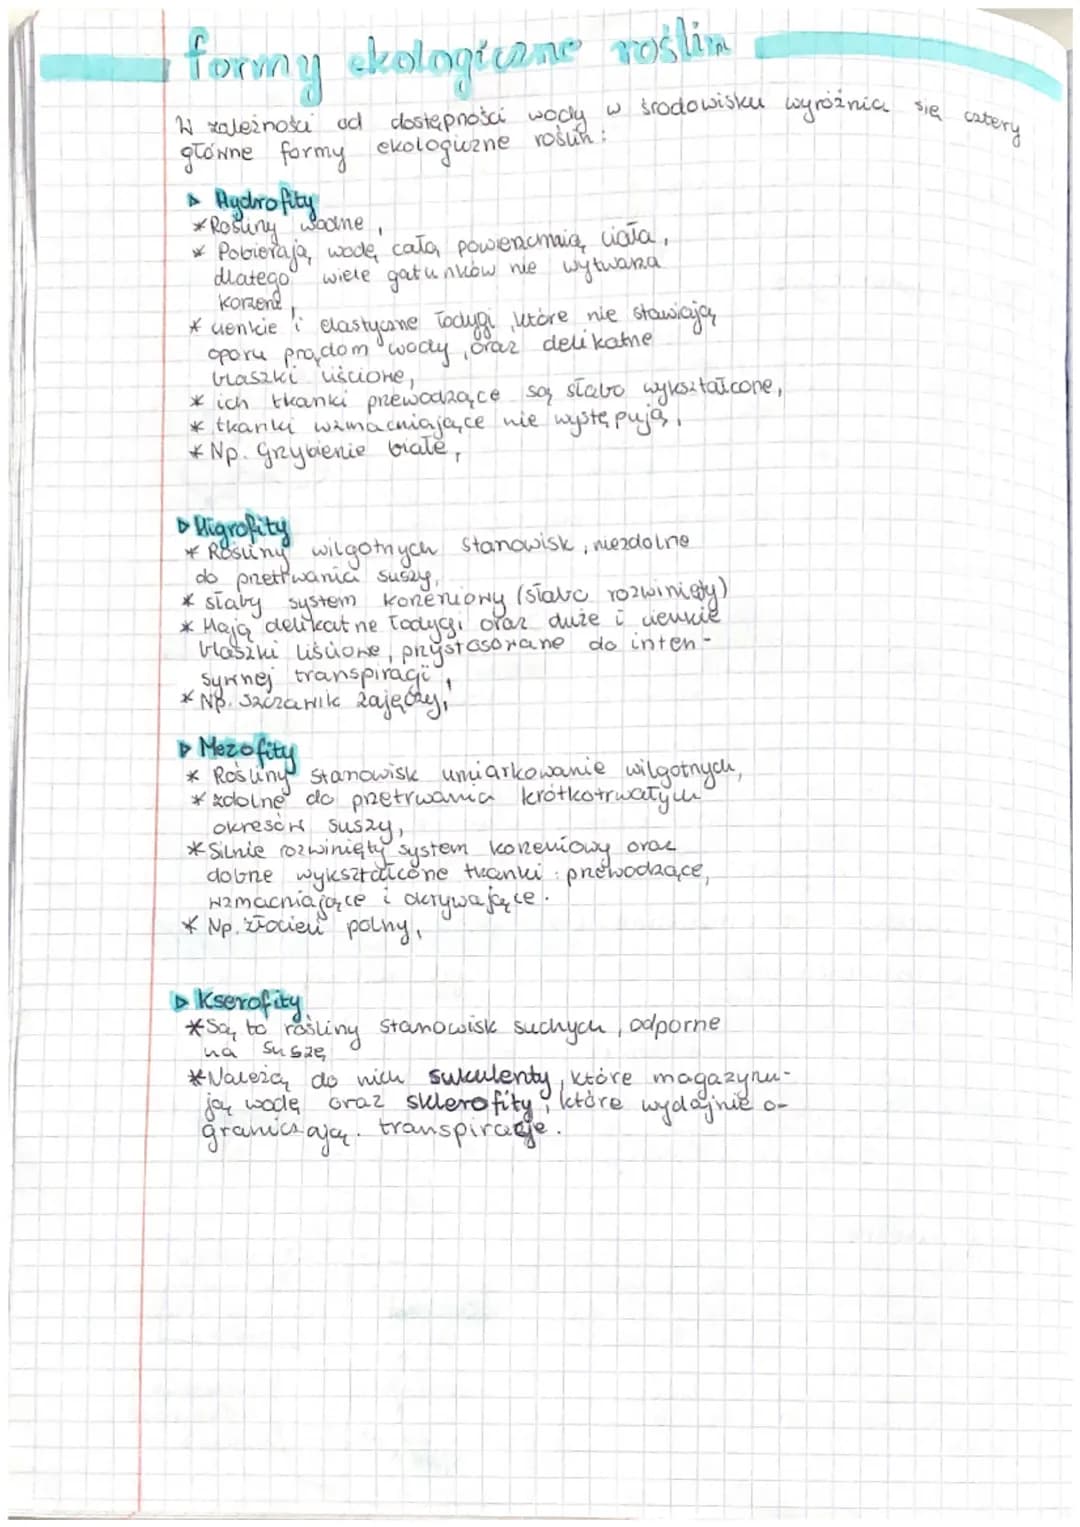 formy ekologiczne roślin
W zależności od dostępności wody w środowisku wyróżnia się cztery
główne formy ekologiczne roślin:
▷ Hydrofity
* Rośliny wodne,
* Pobierają wodę całą powierzchnią ciała,
dlatego wiele gatunków nie wytwarza
korzeni,
* cienkie i elastyczne łodygi, które nie stawiają
oporu prądom wody, oraz delikatne
blaszki liściowe,
* ich tkanki przewodzące są słabo wykształcone,
* tkanki wzmacniające nie występują,
* Np. Grzybienie białe,
▷ Higrofity
* Rośliny wilgotnych stanowisk, niezdolne
do przetrwania suszy,
* słaby system korzeniowy (słabo rozwinięty)
* Mają delikatne łodygi oraz duże i cienkie
blaszki liściowe, przystosowane do inten-
sywnej transpiracji,
* Np. Szczawik zajęczy,
▷ Mezofity
* Rośliny stanowisk umiarkowanie wilgotnych,
* zdolne do przetrwania krótkotrwałych
okresów suszy,
* Silnie rozwinięty system korzeniowy oraz
dobrze wykształcone tkanki: przewodzące,
wzmacniające i okrywające.
* Np. złocień polny,
▷ Kserofity
* Są to rośliny stanowisk suchych, odporne
na suszę
* Należą do nich sukulenty, które magazynu-
ją wodę oraz sklerofity, które wydajnie o-
graniczają. transpirację.